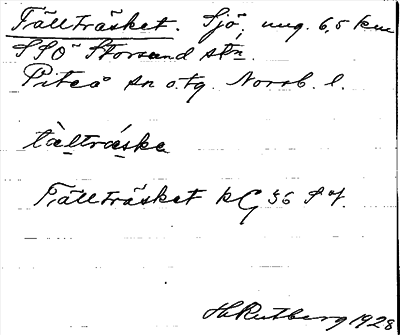 Tällträsket. Sjö, ung. 6,5 km
SSO Storsund stn.
Piteå sn o. tg. Norrb. l.
tàltráske
Tällträsket kG 36 Sv.
H. Rutberg 1928